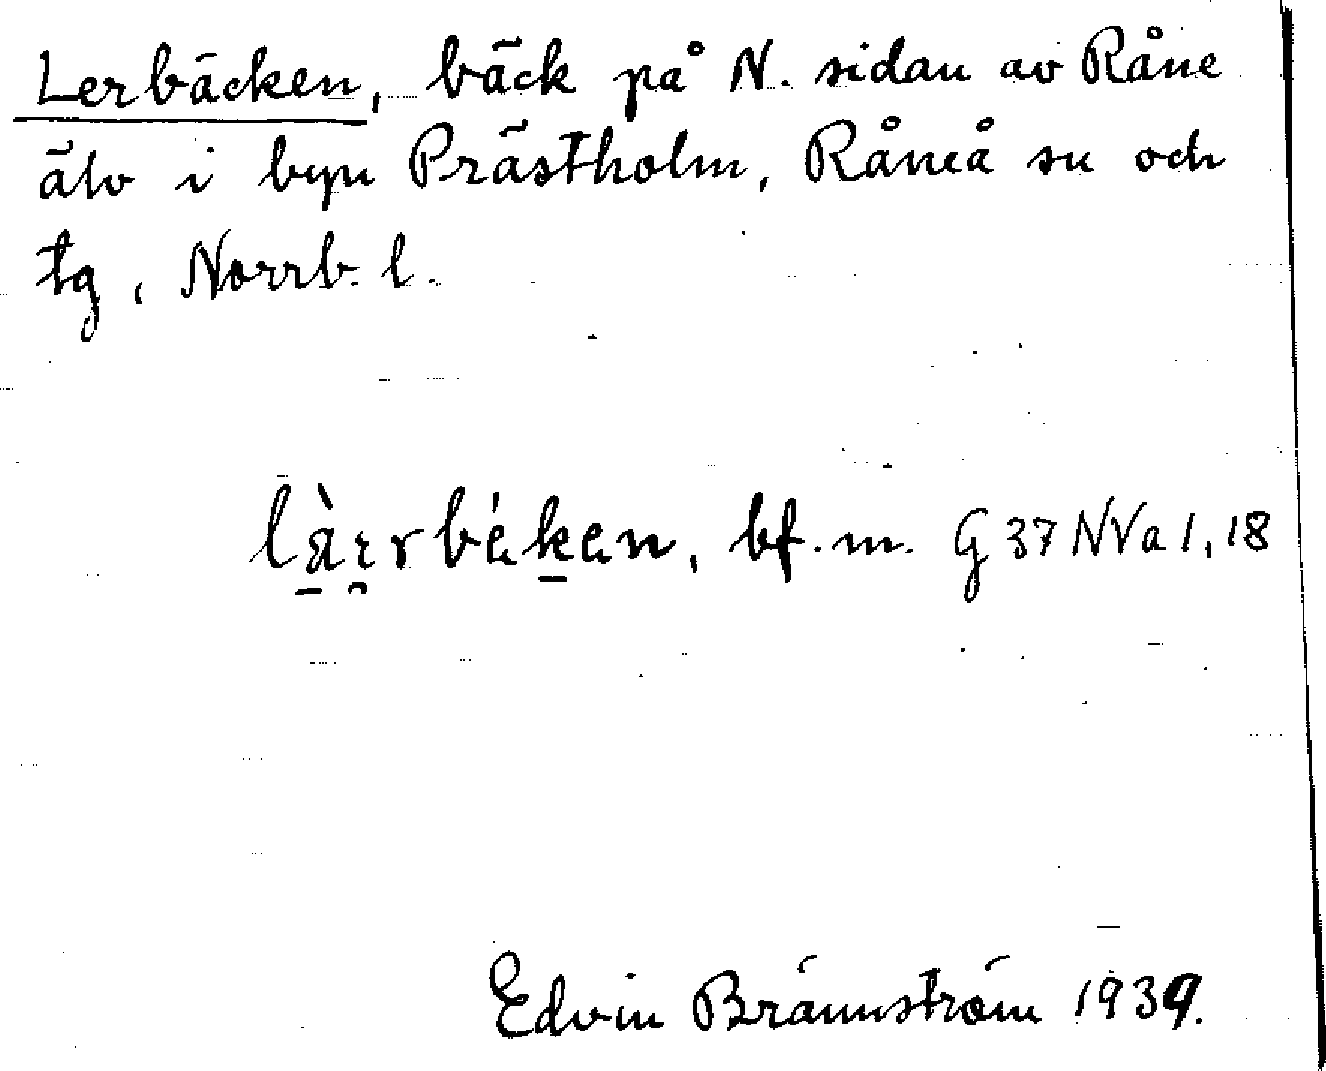 Lerbäcken, bäck på N. sidan av Råne
älv i byn Prästholm, Råneå sn och
tg, Norrb. l.
bf. m. G 37 NVa 1, 18
Edvin Brännström 1939.